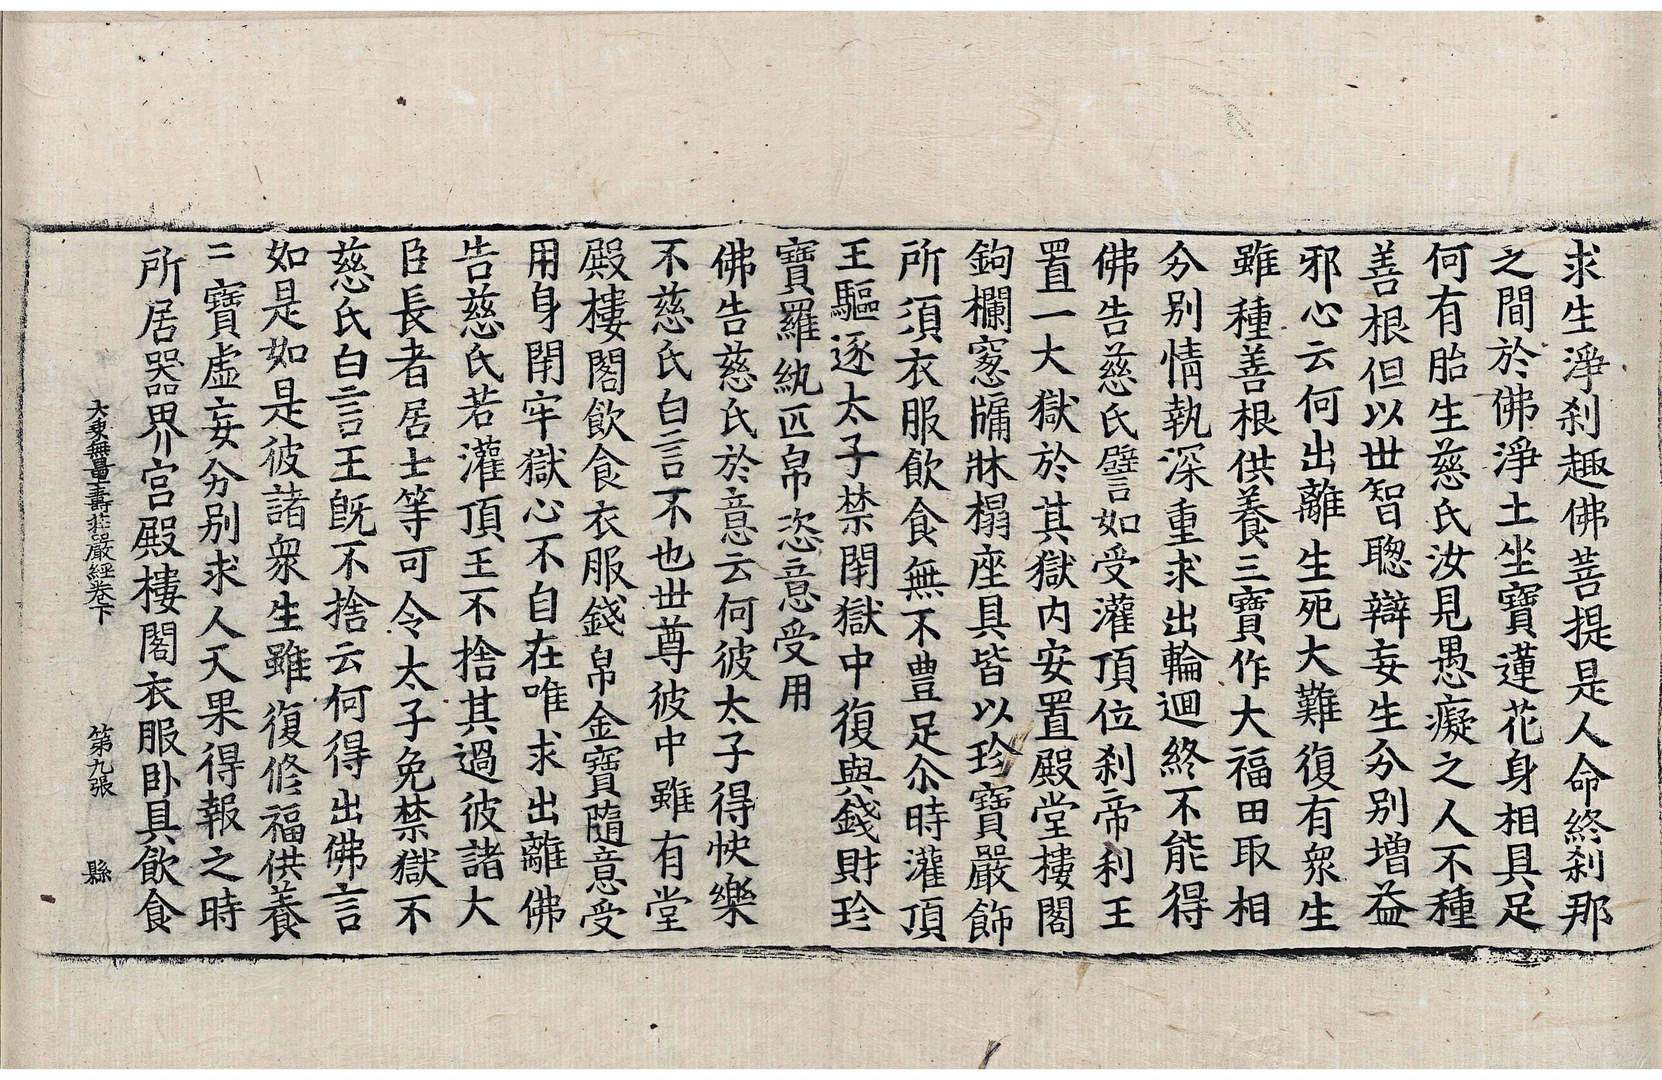 求生淨刹趣佛菩提是人命終刹那
之間於佛淨土坐寶蓮花身相具足
何有胎生慈氏汝見愚癡之人不種
善根但以世智聰辯妄生分別增益
邪心云何出離生死大難復有衆生
雖種善根供養三寶作大福田取相
分別情執深重求出輪迴終不能得
佛告慈氏譬如受灌頂位刹帝利王
置一大獄於其獄内安置殿堂樓閣
鉤欄窓牖牀榻座具皆以珍寶嚴飾
所須衣服飲食無不豊足尒時灌頂
王驅逐太子禁閇獄中復與錢財珍
寶羅紈匹帛恣意受用
佛告慈氏於意云何彼太子得快樂
不慈氏白言不也世尊彼中雖有堂
殿樓閣飲食衣服錢帛金寶隨意受
用身閇牢獄心不自在唯求出離佛
告慈氏若灌頂王不捨其過彼諸大
臣長者居士等可令太子免禁獄不
慈氏白言王旣不捨云何得出佛言
如是如是彼諸衆生雖復修福供養
三寶虛妄分別求人天果得報之時
所居器界宮殿樓閣衣服卧具飲食
大乗無量壽莊嚴經卷下 第九張 縣